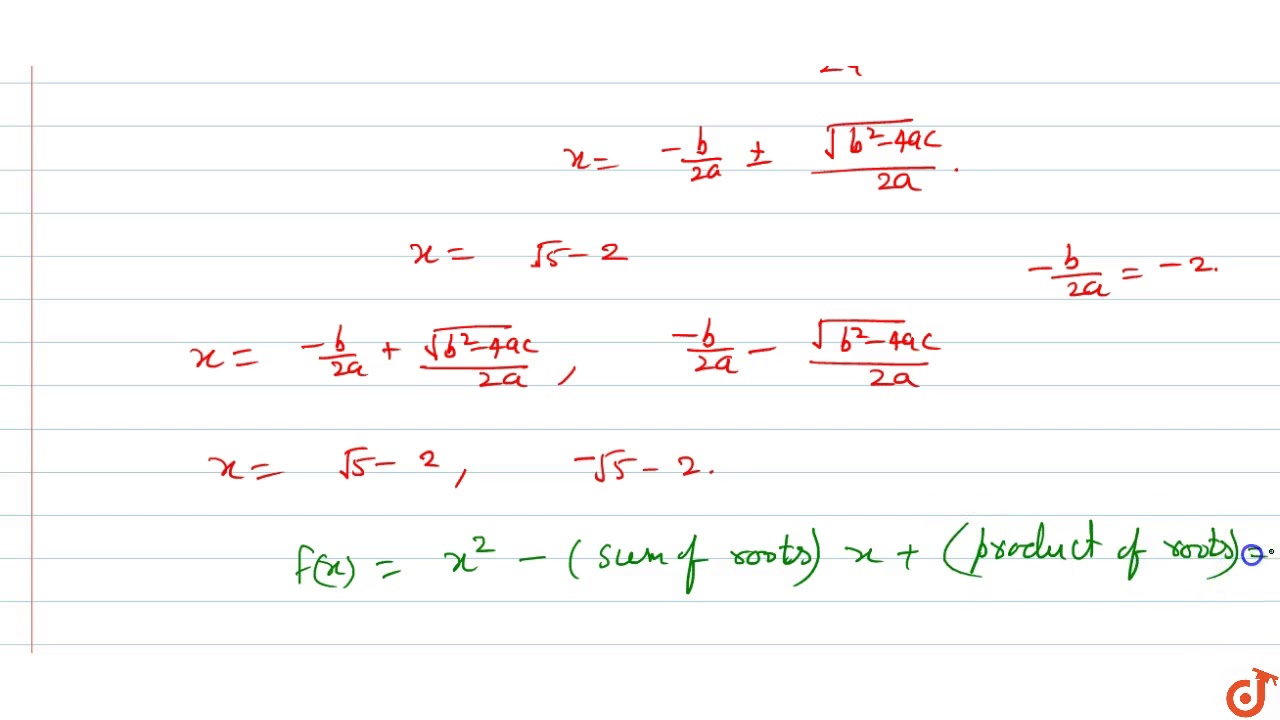 x = -b/2a ± √(b²-4ac)/2a .
x = √5 - 2
-b/2a = -2.
x = -b/2a + √(b²-4ac)/2a , -b/2a - √(b²-4ac)/2a
x = √5 - 2 , -√5 - 2.
f(x) = x² - (sum of roots) x + (product of roots) =